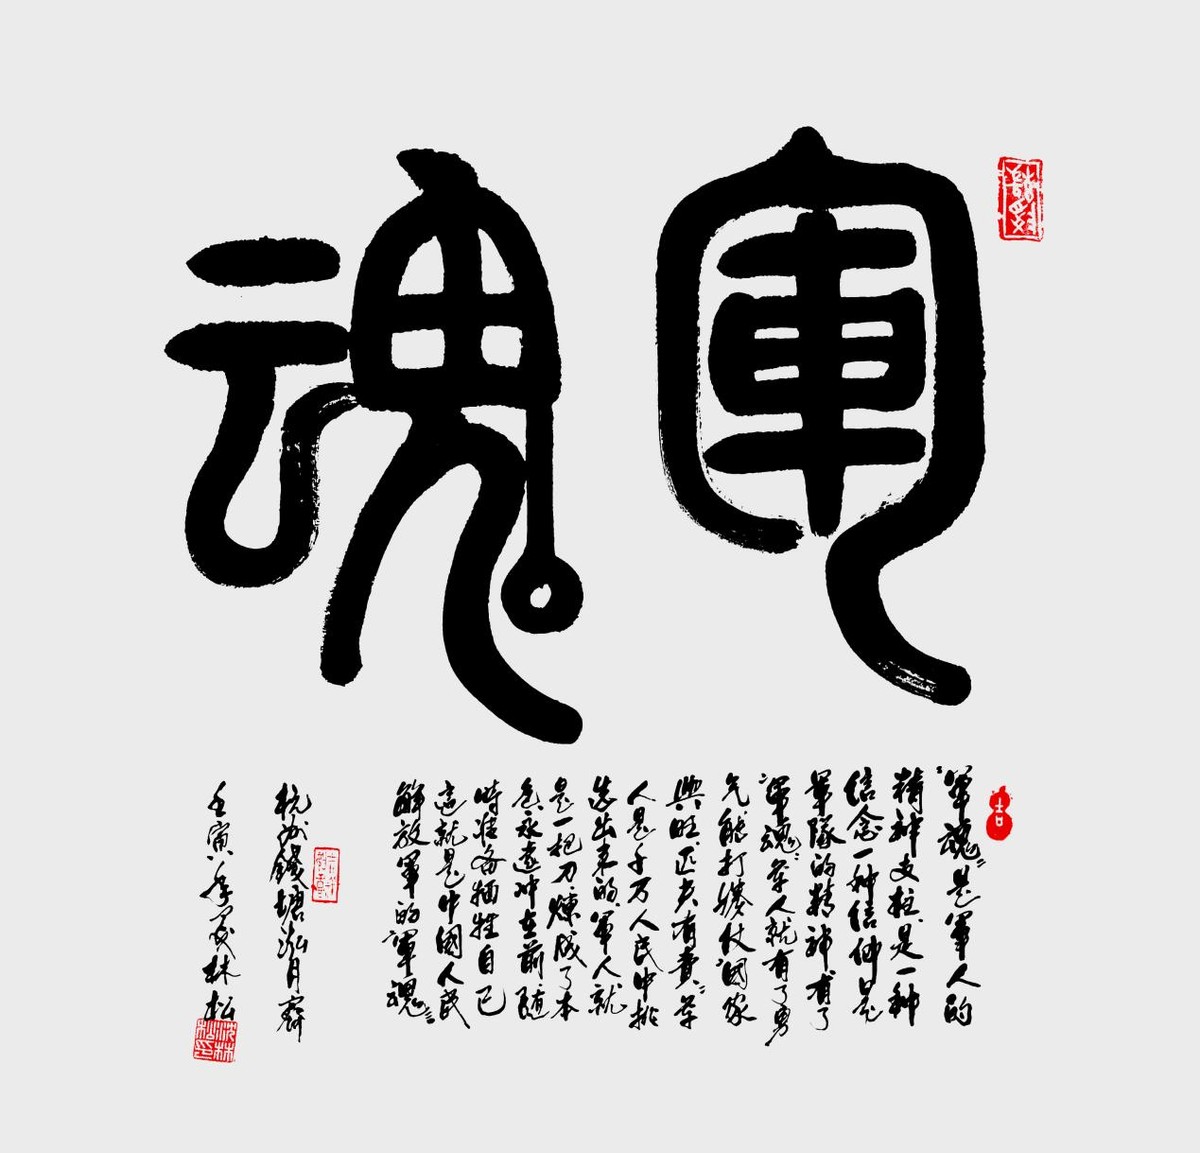 軍魂
"軍魂"是軍人的
精神支柱是一种
信念一种信仰是
軍隊的精神有了
"軍魂"軍人就有了勇
气能打勝仗"國家
興旺匹夫有責"軍
人是千万人民中挑
选出来的軍人就
是一把刀煉成了本
色永遠冲在前随
時准备牺牲自己
這就是中國人民
解放軍的"軍魂"
杭州錢塘泓月齋
壬寅年 林松
吉
沈林松印